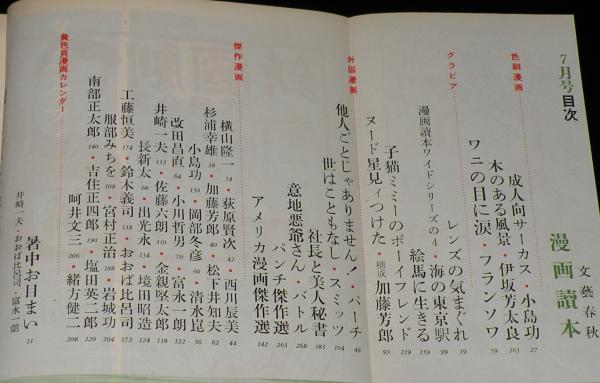 7月号目次
文藝春秋
漫画讀本
色刷漫画
成人向サーカス・小島功 27
木のある風景 伊坂芳太良 163
ワニの目に涙・フランソワ 79
グラビア
レンズの気まぐれ 19
海の東京駅 99
漫画讀本ワイドシリーズの4・絵馬に生きる 159
子猫ミミーのボーイフレンド 219
ヌード星見ィつけた・構成 加藤芳郎 93
外国漫画
他人ごとじゃありません!・パーチ 48
世はこともなし・スミッツ 104
社長と美人秘書 183
意地悪爺さん・バトル 268
パンチ傑作選 263
アメリカ漫画傑作選 142
傑作漫画
横山隆一 34・荻原賢次 42・西川辰美 44
杉浦幸雄 38・加藤芳郎 40・松下井知夫 62
小島功 130・岡部冬彦 60・清水崑 36
改田昌直 64・小川哲男 70・富永一朗 122
井崎一夫 132・佐藤六朗 110・金親堅太郎 118
長新太 68・出光永 134・境田昭造 124
工藤恒美 174・鈴木義司 138・おおば比呂司 172
服部みちを 108・宮村正治 188・岩城功 204
南部正太郎 140・吉住正四郎 190・塩田英二郎 120
阿井文三 206・緒方健二 208
黄色頁漫画カレンダー
暑中お日まい 11
井崎一夫・おおば比呂司・富永一朗